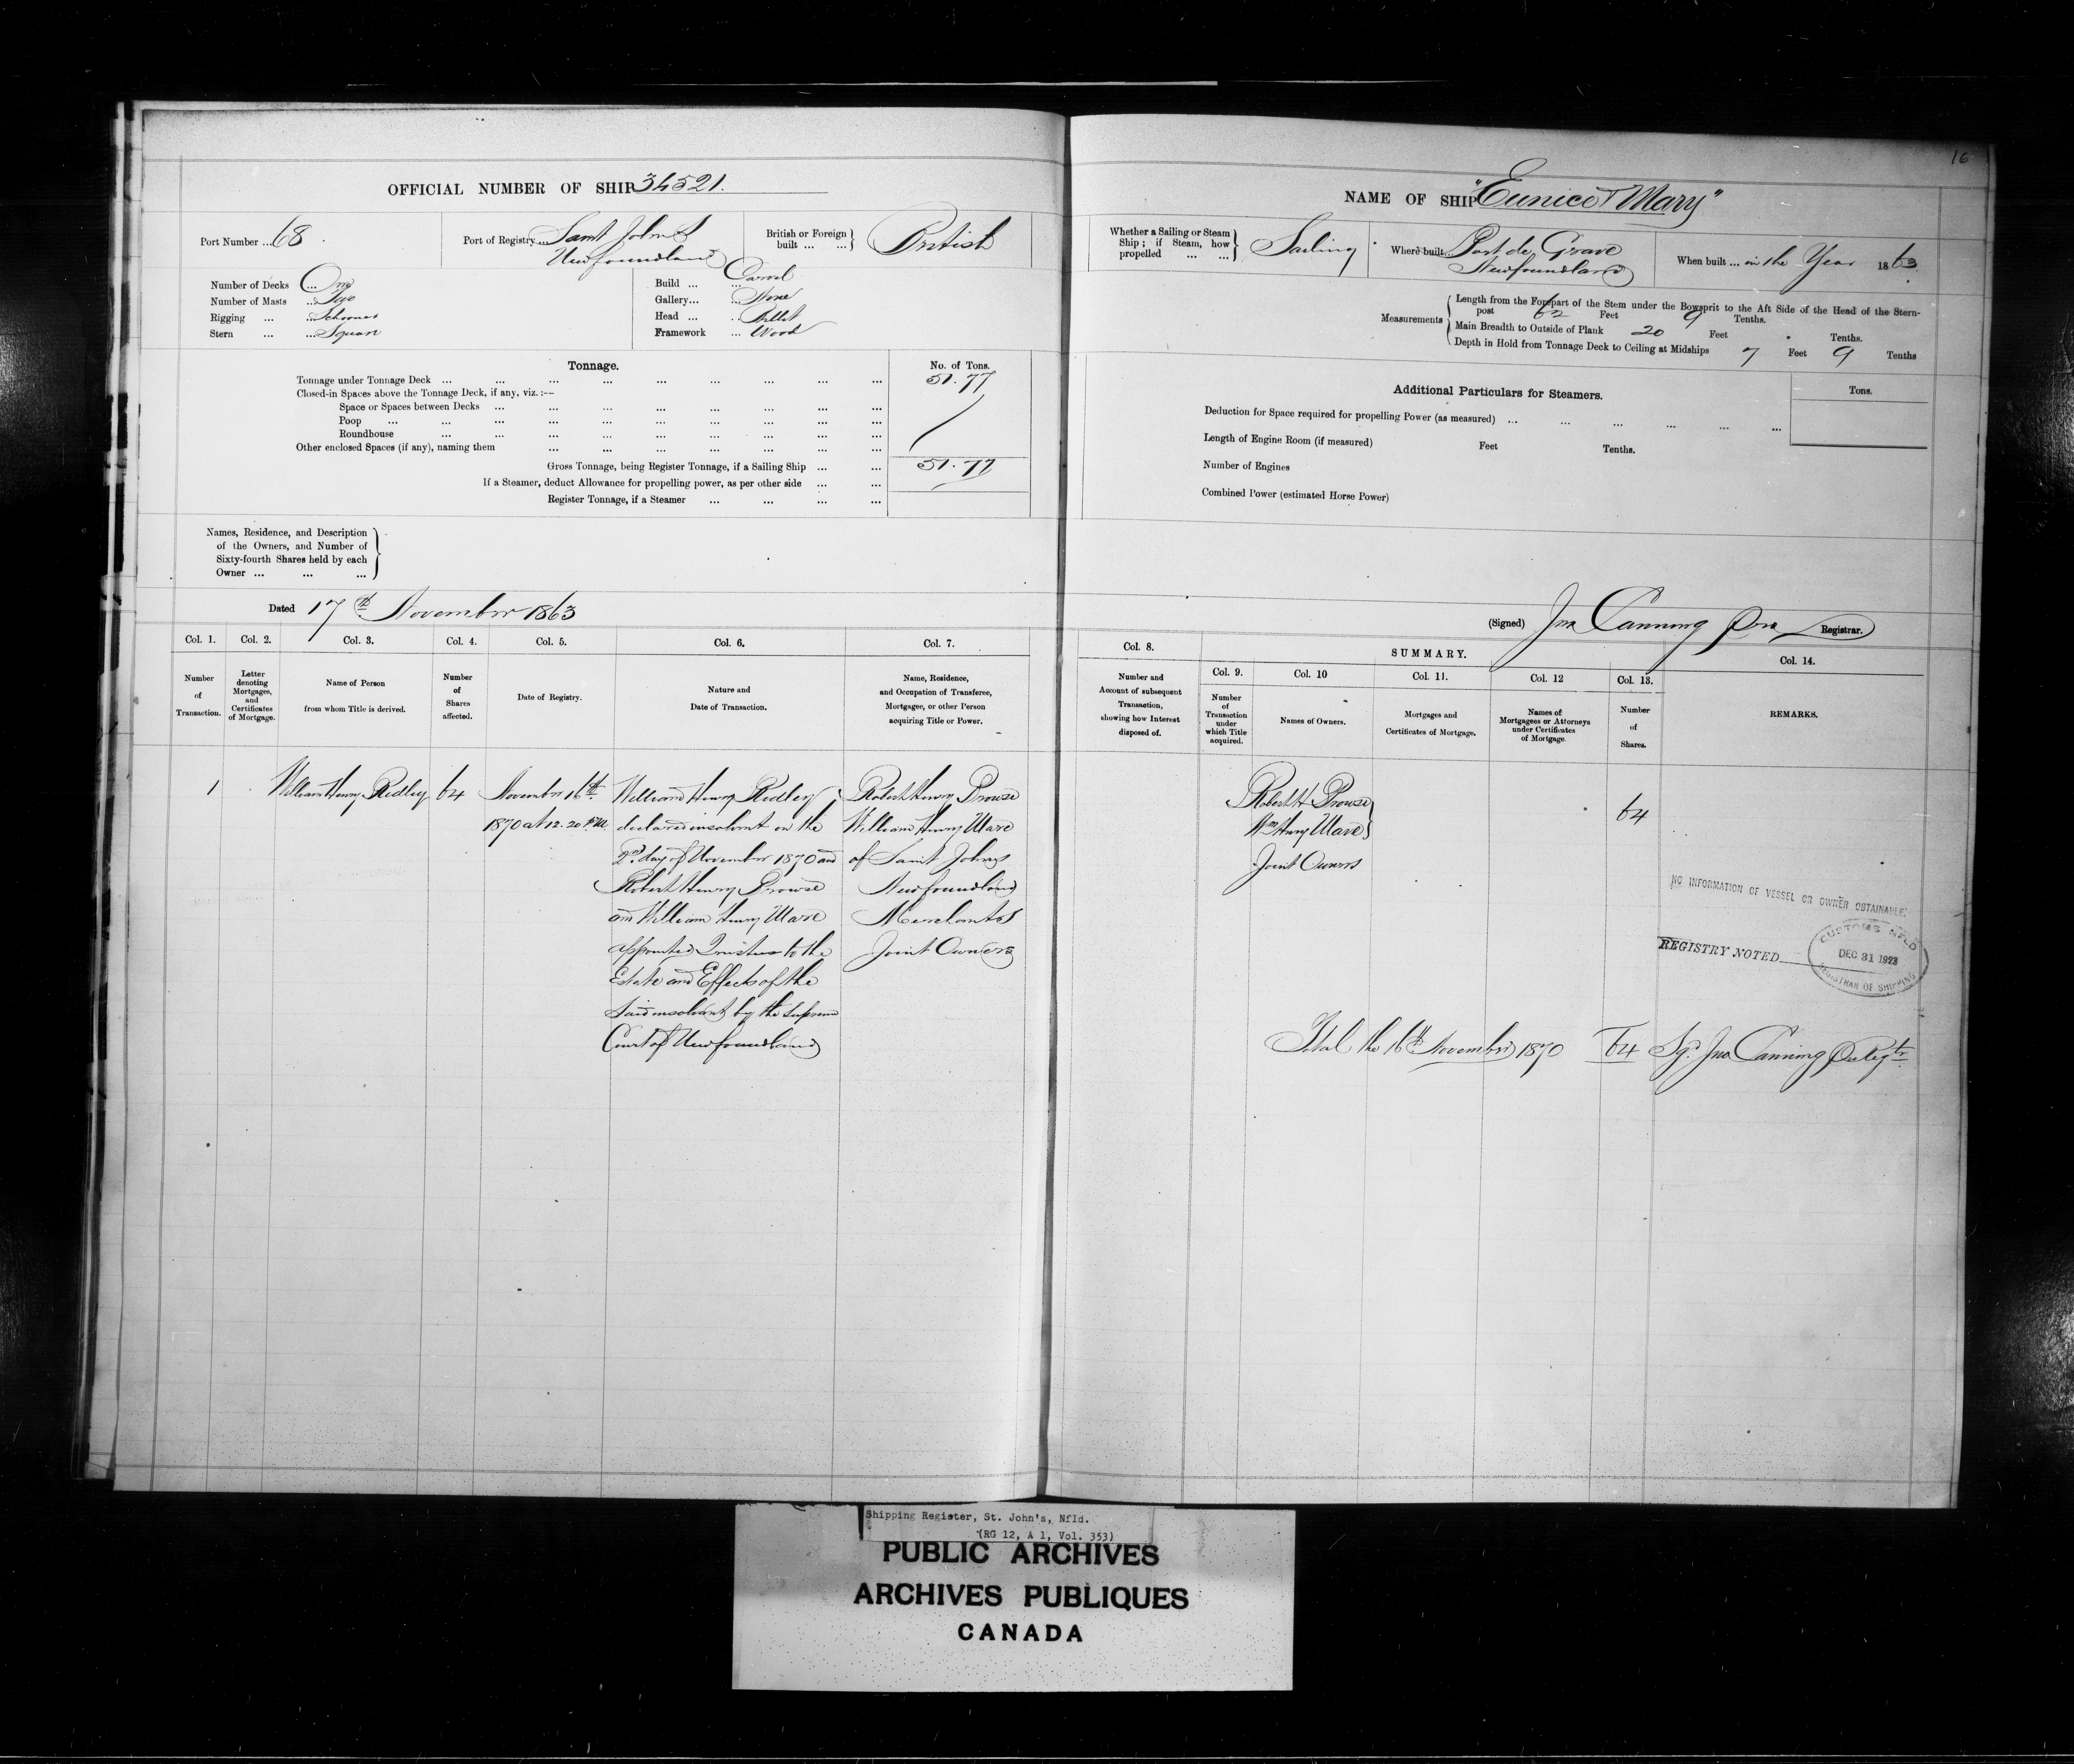 16
OFFICIAL NUMBER OF SHIP 34521.
Port Number ... 68.
Port of Registry ... Saint John's
Newfoundland
British or Foreign
built ... ...
British
Number of Decks ... One
Number of Masts ... Two
Rigging ... ... Schooner
Stern ... ... Square
Build ... ... Carvel
Gallery... ... None
Head ... ... Billet
Framework ... Wood
Tonnage.
No. of Tons.
Tonnage under Tonnage Deck ... ... ... ... ... ... ... ... ... 51.77
Closed-in Spaces above the Tonnage Deck, if any, viz.:—
Space or Spaces between Decks ... ... ... ... ... ... ... ...
Poop ... ... ... ... ... ... ... ... ... ...
Roundhouse ... ... ... ... ... ... ... ... ...
Other enclosed Spaces (if any), naming them ... ... ... ... ... ... ...
Gross Tonnage, being Register Tonnage, if a Sailing Ship ... ... 51.77
If a Steamer, deduct Allowance for propelling power, as per other side ... ...
Register Tonnage, if a Steamer ... ... ... ...
Names, Residence, and Description
of the Owners, and Number of
Sixty-fourth Shares held by each
Owner ... ... ...
Dated 17th November 1863
Col. 1. Col. 2. Col. 3. Col. 4. Col. 5. Col. 6. Col. 7.
Number
of
Transaction.
Letter
denoting
Mortgages,
and
Certificates
of Mortgage.
Name of Person
from whom Title is derived.
Number
of
Shares
affected.
Date of Registry.
Nature and
Date of Transaction.
Name, Residence,
and Occupation of Transferee,
Mortgagee, or other Person
acquiring Title or Power.
1
William Henry Ridley
64
November 16th
1870 at 12.20 P.M.
William Henry Ridley
declared insolvent on the
2nd day of November 1870 and
Robert Henry Prowse
and William Henry Ware
appointed Trustees to the
Estate and Effects of the
said insolvent by the Supreme
Court of Newfoundland
Robert Henry Prowse
William Henry Ware
of Saint Johns
Newfoundland
Merchants
Joint Owners
NAME OF SHIP "Eunice & Mary"
Whether a Sailing or Steam
Ship; if Steam, how
propelled ... ...
Sailing
Where built... Port de Grave
Newfoundland
When built ... in the Year 1863
Measurements
Length from the Forepart of the Stem under the Bowsprit to the Aft Side of the Head of the Stern-
post 62 Feet 9 Tenths.
Main Breadth to Outside of Plank 20 Feet . Tenths.
Depth in Hold from Tonnage Deck to Ceiling at Midships 7 Feet 9 Tenths
Additional Particulars for Steamers.
Tons.
Deduction for Space required for propelling Power (as measured) ... ... ... ... ... ...
Length of Engine Room (if measured) Feet Tenths.
Number of Engines
Combined Power (estimated Horse Power)
(Signed) Jno Canning Registrar.
Col. 8.
SUMMARY.
Col. 9. Col. 10 Col. 11. Col. 12 Col. 13. Col. 14.
Number and
Account of subsequent
Transaction,
showing how Interest
disposed of.
Number
of
Transaction
under
which Title
acquired.
Names of Owners.
Mortgages and
Certificates of Mortgage.
Names of
Mortgagees or Attorneys
under Certificates
of Mortgage.
Number
of
Shares.
REMARKS.
Robert H Prowse
Wm Henry Ware
Joint Owners
64
NO INFORMATION OF VESSEL OR OWNER OBTAINABLE.
REGISTRY NOTED
CUSTOMS NFLD
DEC 31 1923
REGISTRAR OF SHIPPING
Total the 16th November 1870 64 Sgd. Jno Canning
Shipping Register, St. John's, Nfld.
(RG 12, A 1, Vol. 353)
PUBLIC ARCHIVES
ARCHIVES PUBLIQUES
CANADA